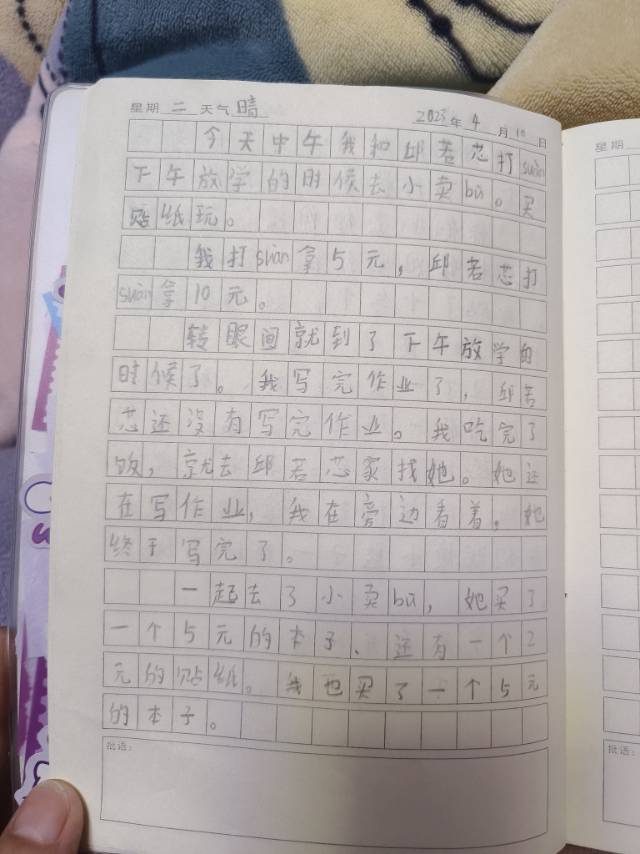 星期 二 天气 晴 2025年 4 月 10 日
今天中午我和邱若芯打suàn
下午放学的时候去小卖bù。买
贴纸玩。
我打suàn拿5元，邱若芯打
suàn拿10元。
转眼间就到了下午放学的
时候了。我写完作业了，邱若
芯还没有写完作业。我吃完了
饭，就去邱若芯家找她。她还
在写作业，我在旁边看着，她
终于写完了。
一起去了小卖bù，她买了
一个5元的本子、还有一个2
元的贴纸。我也买了一个5元
的本子。
批语：
星期
批语：